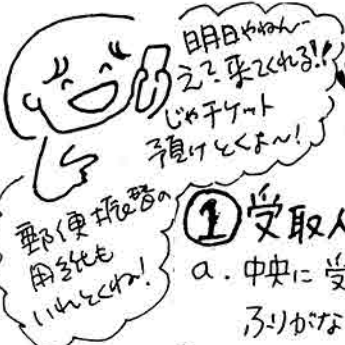 明日やねん…
えっ、来てくれる!!
じゃチケット
預けとくよ〜!
郵便振替の
用紙も
いれとくね!
①受取人
a. 中央に受
ふりがな